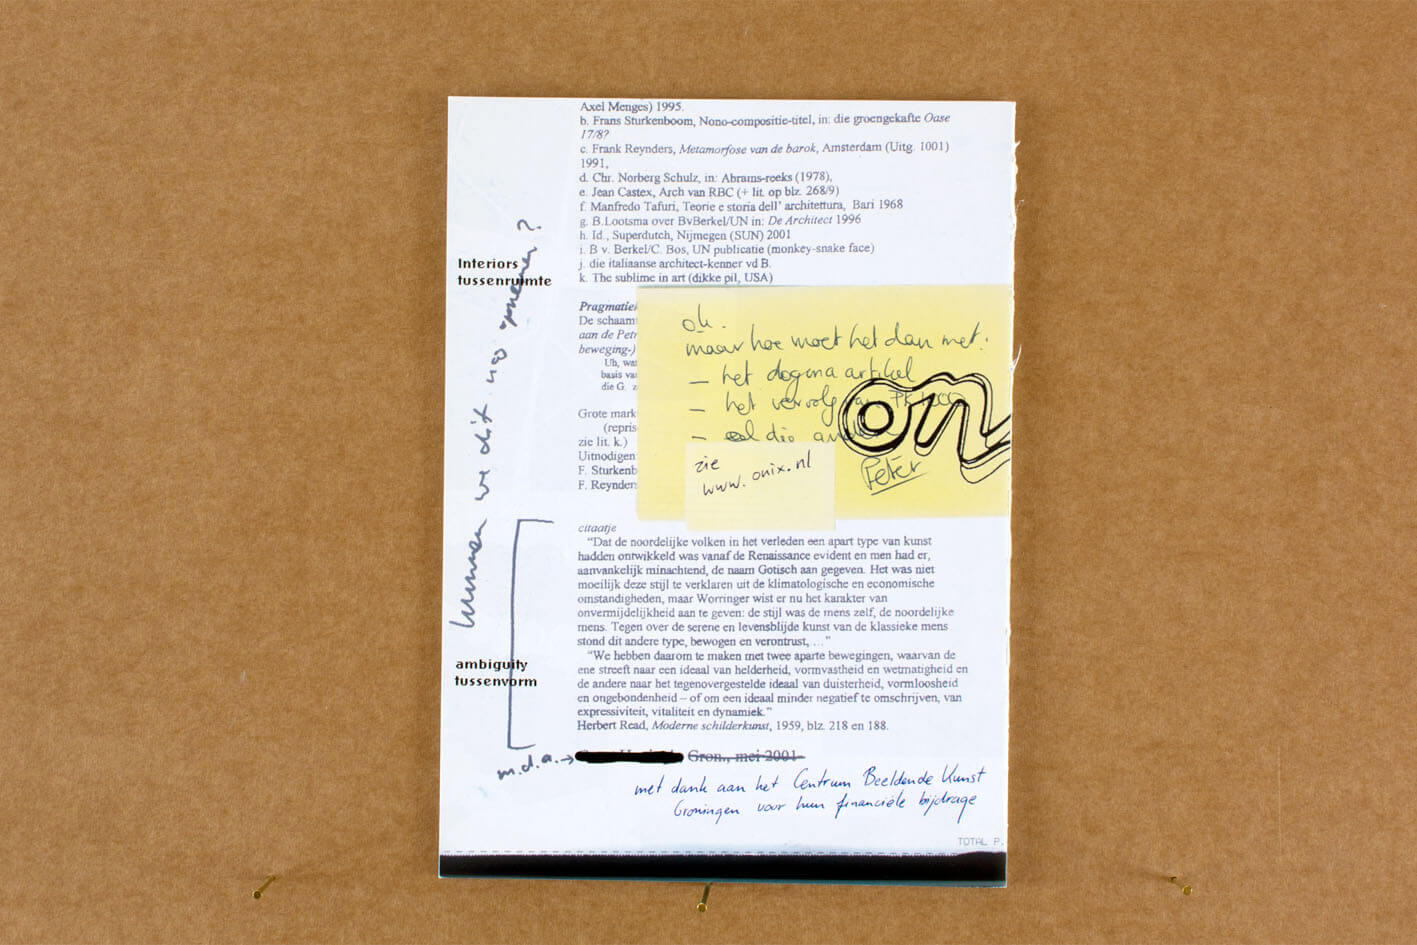 Axel Menges) 1995.
b. Frans Sturkenboom, Nono-compositie-titel, in: die groengekafte Oase
17/8?
c. Frank Reynders, Metamorfose van de barok, Amsterdam (Uitg. 1001)
1991,
d. Chr. Norberg Schulz, in: Abrams-reeks (1978),
e. Jean Castex, Arch van RBC (+ lit. op blz. 268/9)
f. Manfredo Tafuri, Teorie e storia dell' architettura, Bari 1968
g. B.Lootsma over BvBerkel/UN in: De Architect 1996
h. Id., Superdutch, Nijmegen (SUN) 2001
i. B v. Berkel/C. Bos, UN publicatie (monkey-snake face)
j. die italiaanse architect-kenner vd B.
k. The sublime in art (dikke pil, USA)
Interiors
tussenruimte
kunnen we dit nog opnemen?
Pragmatiek
De schaamt
aan de Petr
beweging-)
Uh, wat
basis va
die G. z
Grote mark
(repris
zie lit. k.)
Uitnodigen
F. Sturkenb
F. Reynder
ok.
maar hoe moet het dan met:
– het dogma artikel
– het vervolg
– al die
Peter
on
zie
www.onix.nl
citaatje
“Dat de noordelijke volken in het verleden een apart type van kunst
hadden ontwikkeld was vanaf de Renaissance evident en men had er,
aanvankelijk minachtend, de naam Gotisch aan gegeven. Het was niet
moeilijk deze stijl te verklaren uit de klimatologische en economische
omstandigheden, maar Worringer wist er nu het karakter van
onvermijdelijkheid aan te geven: de stijl was de mens zelf, de noordelijke
mens. Tegen over de serene en levensblijde kunst van de klassieke mens
stond dit andere type, bewogen en verontrust, …”
“We hebben daarom te maken met twee aparte bewegingen, waarvan de
ene streeft naar een ideaal van helderheid, vormvastheid en wetmatigheid en
de andere naar het tegenovergestelde ideaal van duisterheid, vormloosheid
en ongebondenheid – of om een ideaal minder negatief te omschrijven, van
expressiviteit, vitaliteit en dynamiek.”
Herbert Read, Moderne schilderkunst, 1959, blz. 218 en 188.
ambiguity
tussenvorm
m.d.a. → Gron., mei 2001
met dank aan het Centrum Beeldende Kunst
Groningen voor hun financiële bijdrage
TOTAL P.